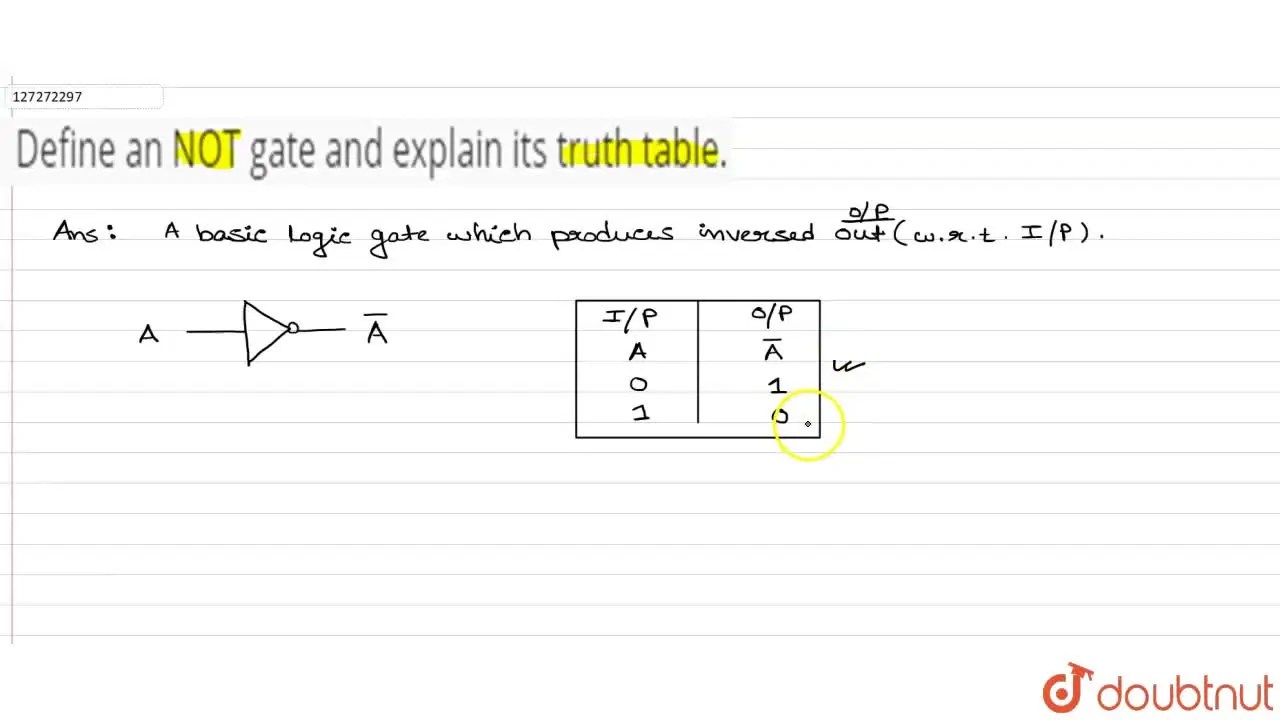 127272297
Define an NOT gate and explain its truth table.
O/P
Ans: A basic logic gate which produces inversed out (w.r.t. I/P).
A Ā
I/P O/P
A Ā
0 1
1 0
doubtnut